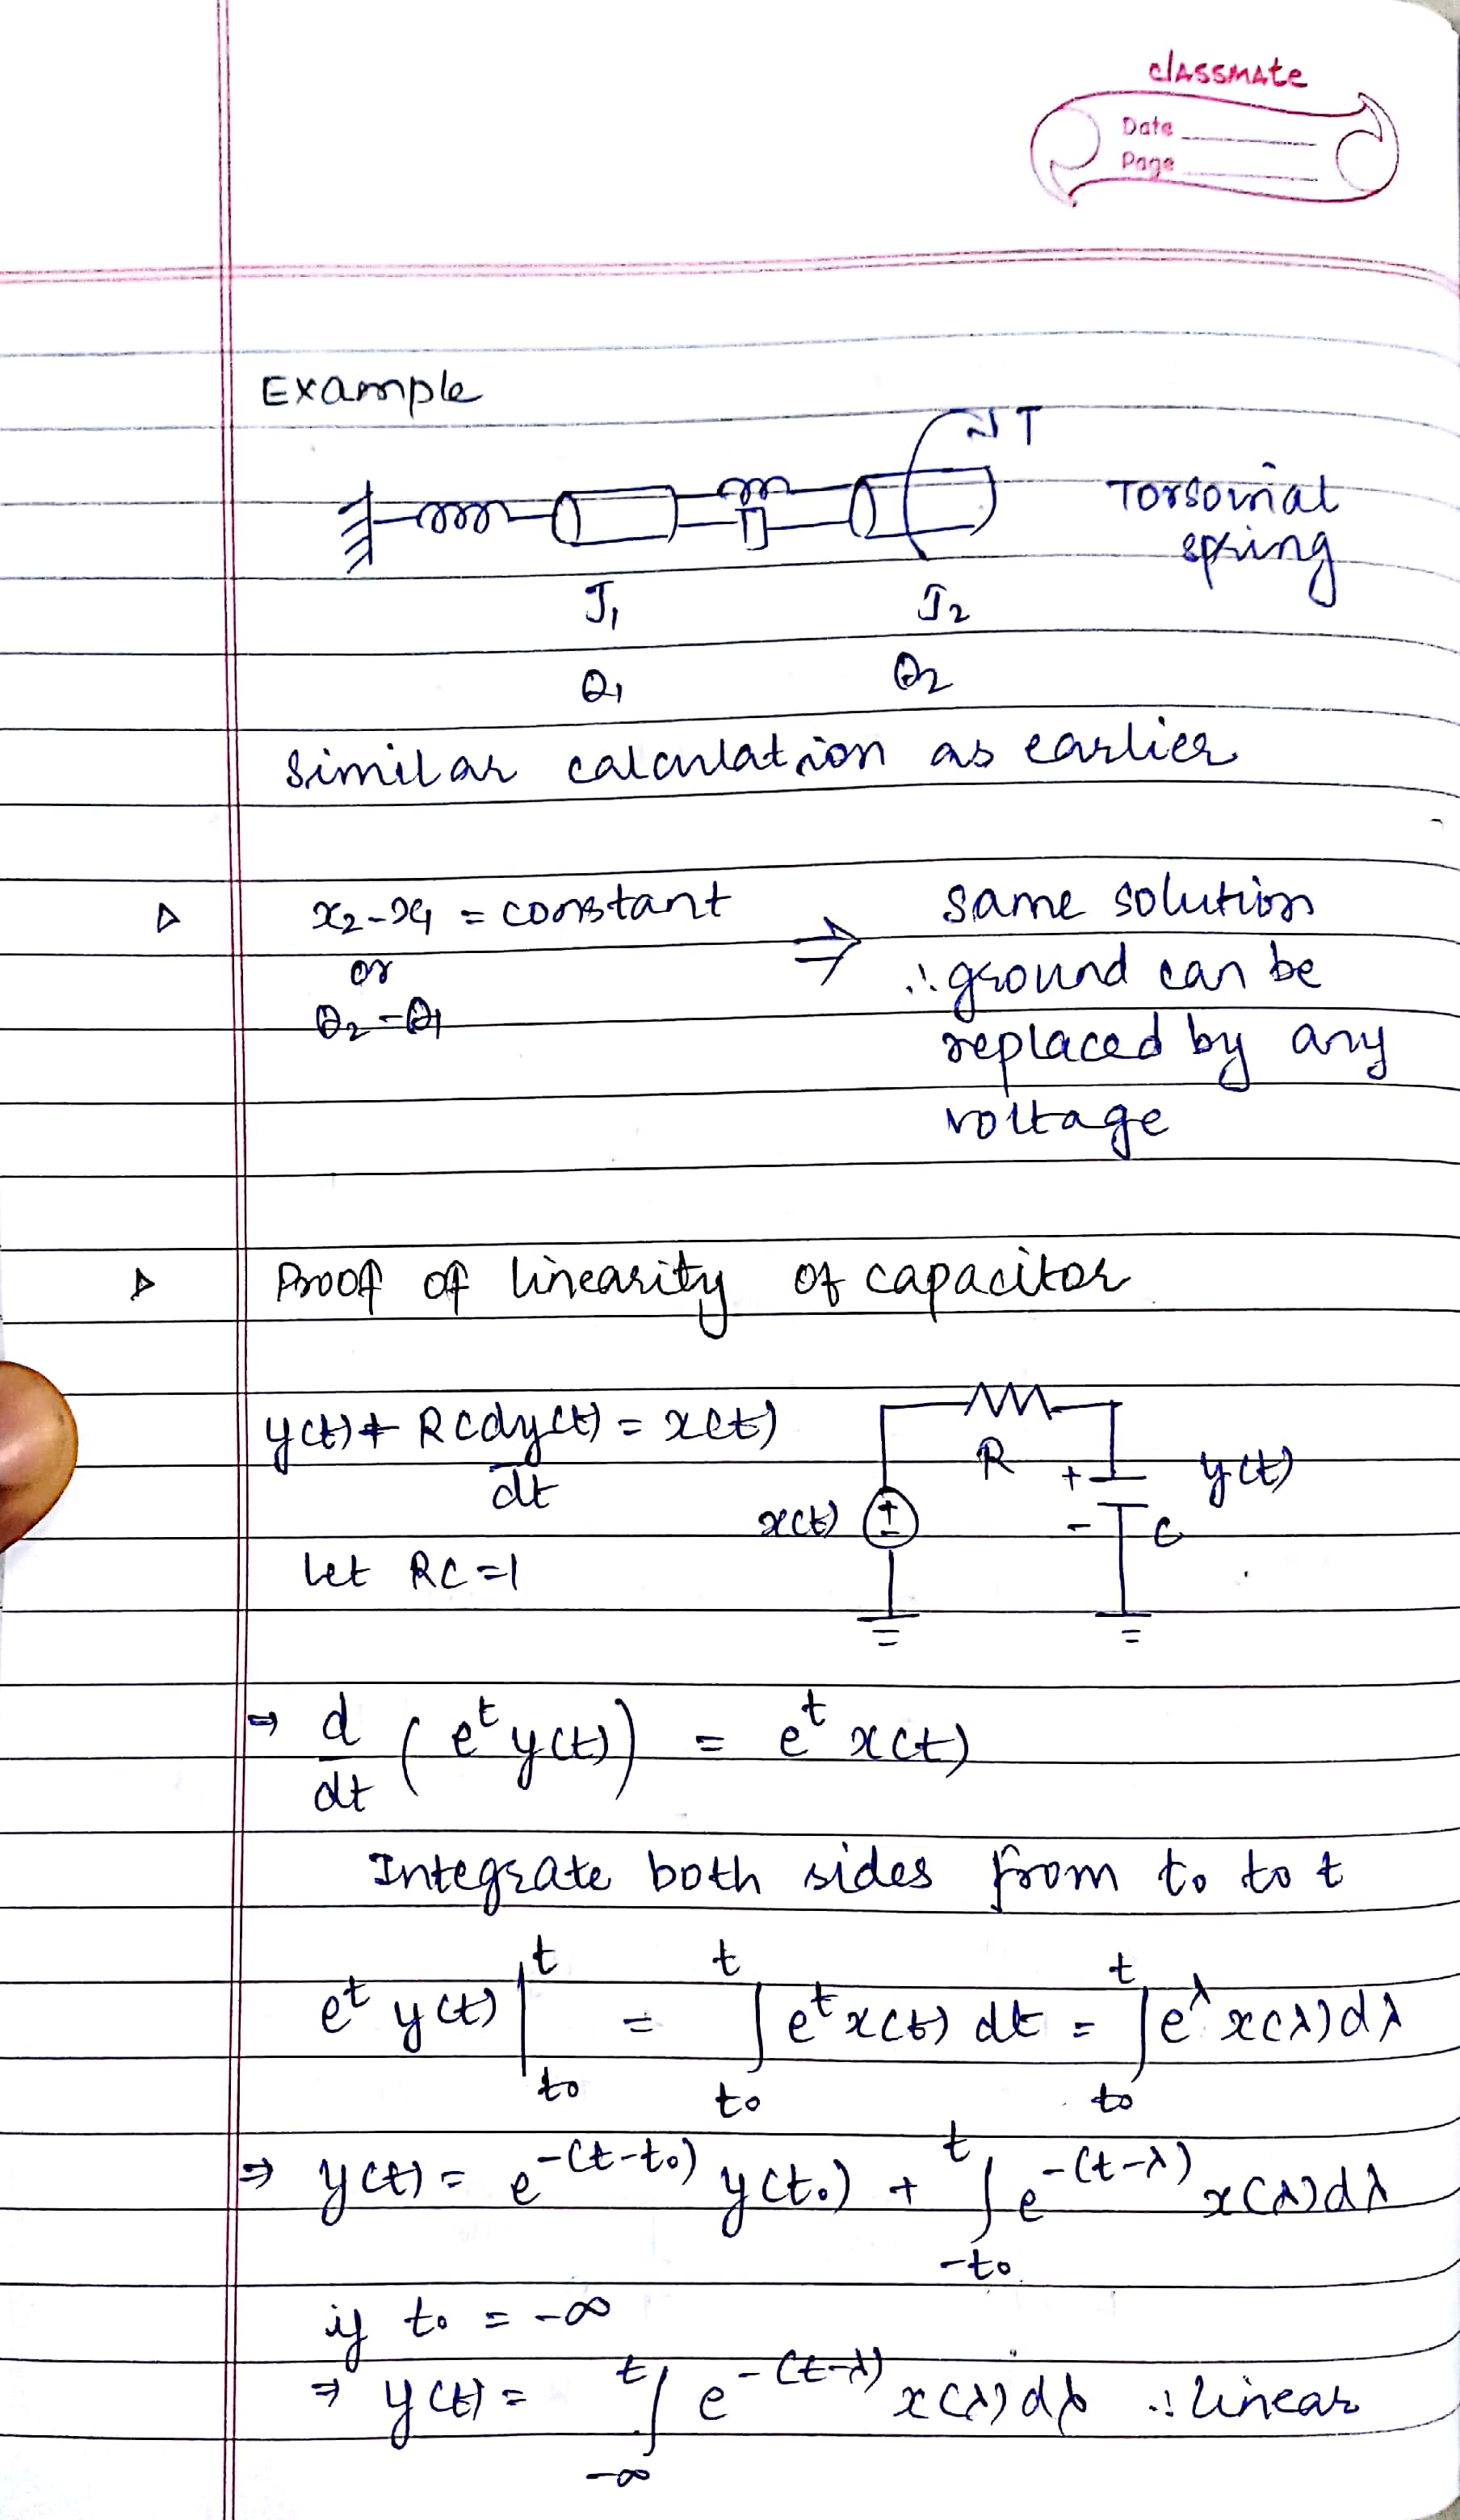 classmate
Date
Page
Example
T
Torsoinal
spring
J₁ J₂
θ₁ θ₂
Similar calculation as earlier
x₂-x₁ = constant ⇒ same solution
or ∴ ground can be
θ₂-θ₁ replaced by any
voltage
Proof of linearity of capacitor
y(t) + RC dy(t)/dt = x(t)
R + y(t)
x(t) ± - C
let RC = 1
⇒ d/dt (e^t y(t)) = e^t x(t)
Integrate both sides from t₀ to t
e^t y(t) |_{t₀}^{t} = ∫_{t₀}^{t} e^t x(t) dt = ∫_{t₀}^{t} e^λ x(λ) dλ
⇒ y(t) = e^{-(t-t₀)} y(t₀) + ∫_{-t₀}^{t} e^{-(t-λ)} x(λ) dλ
if t₀ = -∞
⇒ y(t) = ∫_{-∞}^{t} e^{-(t-λ)} x(λ) dλ ∴ linear